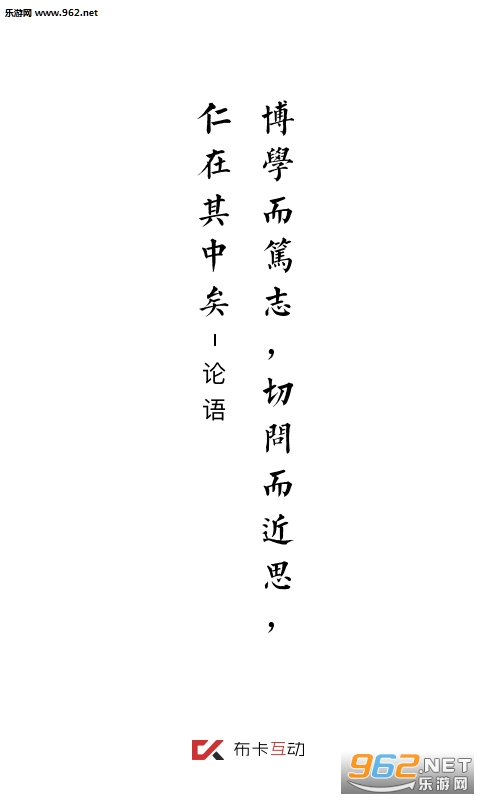 乐游网 www.962.net
博學而篤志，切問而近思，
仁在其中矣－论语
布卡互动
962.NET
乐游网